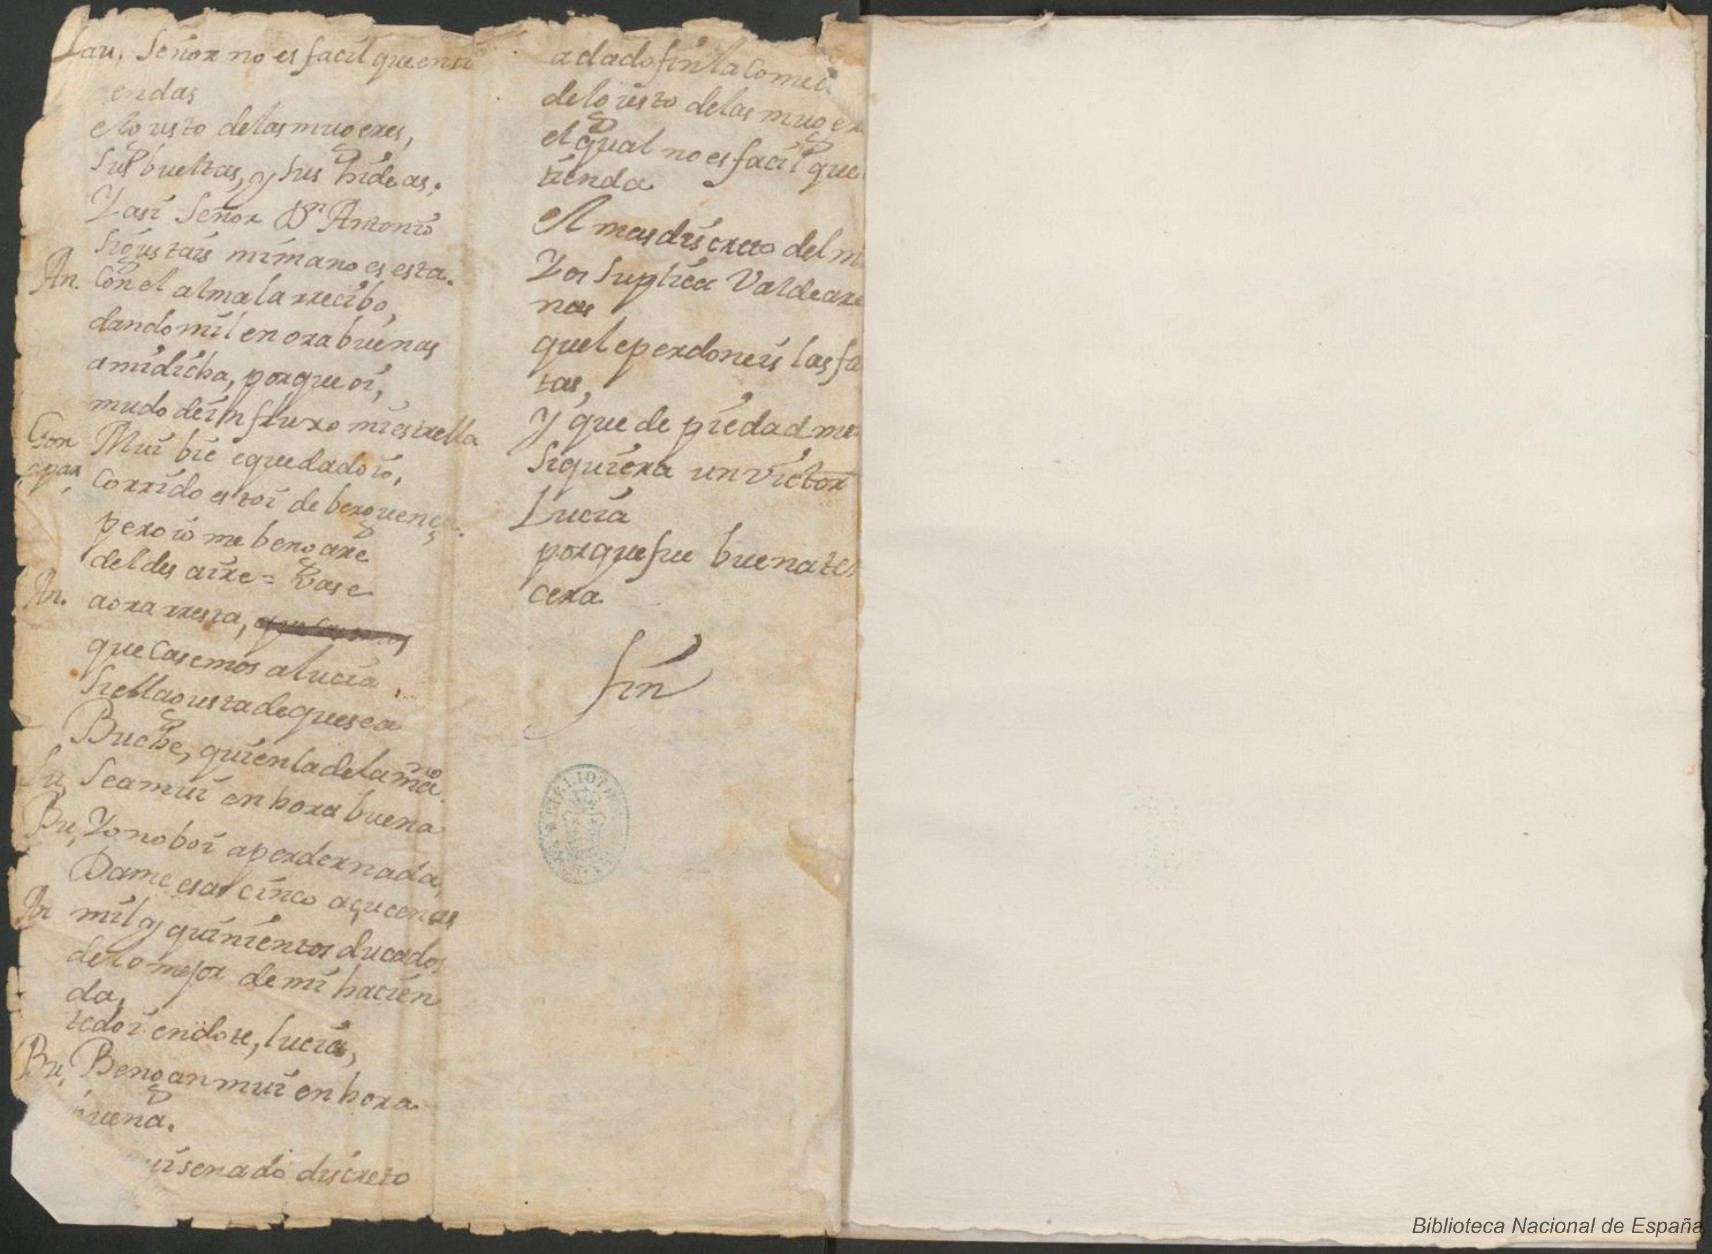 Lau, Señor no es facil que enti
endas
el gusto de las mugeres,
sus bueltas, y sus hideas,
Y asi Señor Dn Antonio
si gustais mi mano es esta.
An. Con el alma la rrecibo,
dando mil en ora buenas
a mi dicha, porque oi,
mudo de influxo mi estrella
Gon Mui bie e quedado io,
apar, Corrido estoi de berguenç
pero io me bengare
del desaire = Vase
An. aora rresta,
que casemos a lucia,
si ella gusta de que sea
Buche, quien la de la mano
Lu, Sea mui en hora buena
Bu, Yo no boi a perder nada,
Dame esas cinco açucenas
An mil y quinientos ducados
de lo mejor de mi hacien
da,
te doi en dote, lucia,
Bu, Bengan mui en hora
buena.
senado discreto
a dado fin la come
del gusto de las muger
el qual no es facil que
tienda
el mas discreto del m
Y os suplica Valdeare
nas
que le perdoneis las fa
tas,
Y que de piedad me
siquiera un victor
Lucia
porque fue buena te
cera
fin
BIBLIOTE
Biblioteca Nacional de España